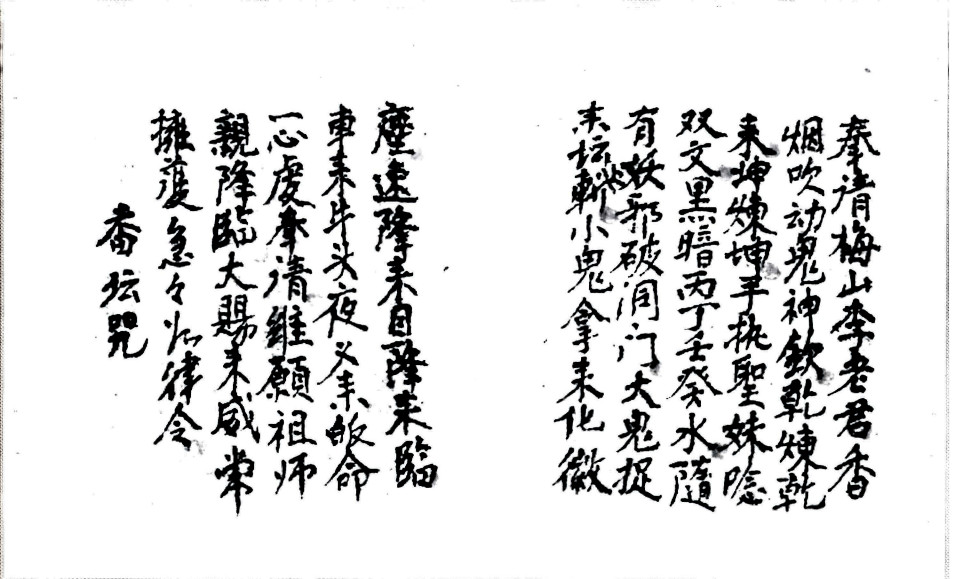 奉请梅山李老君香
烟吹动鬼神钦乾煉乾
来坤煉坤手执聖妹隐
双文黑暗丙丁壬癸水隨
有妖邪破洞门大鬼捉
来坛斬小鬼拿来化微
塵速降来目降来臨
車来牛头夜义来皈命
一心虔奉请雖願祖师
親降臨大赐来威常
擁護急々如律令
番坛咒